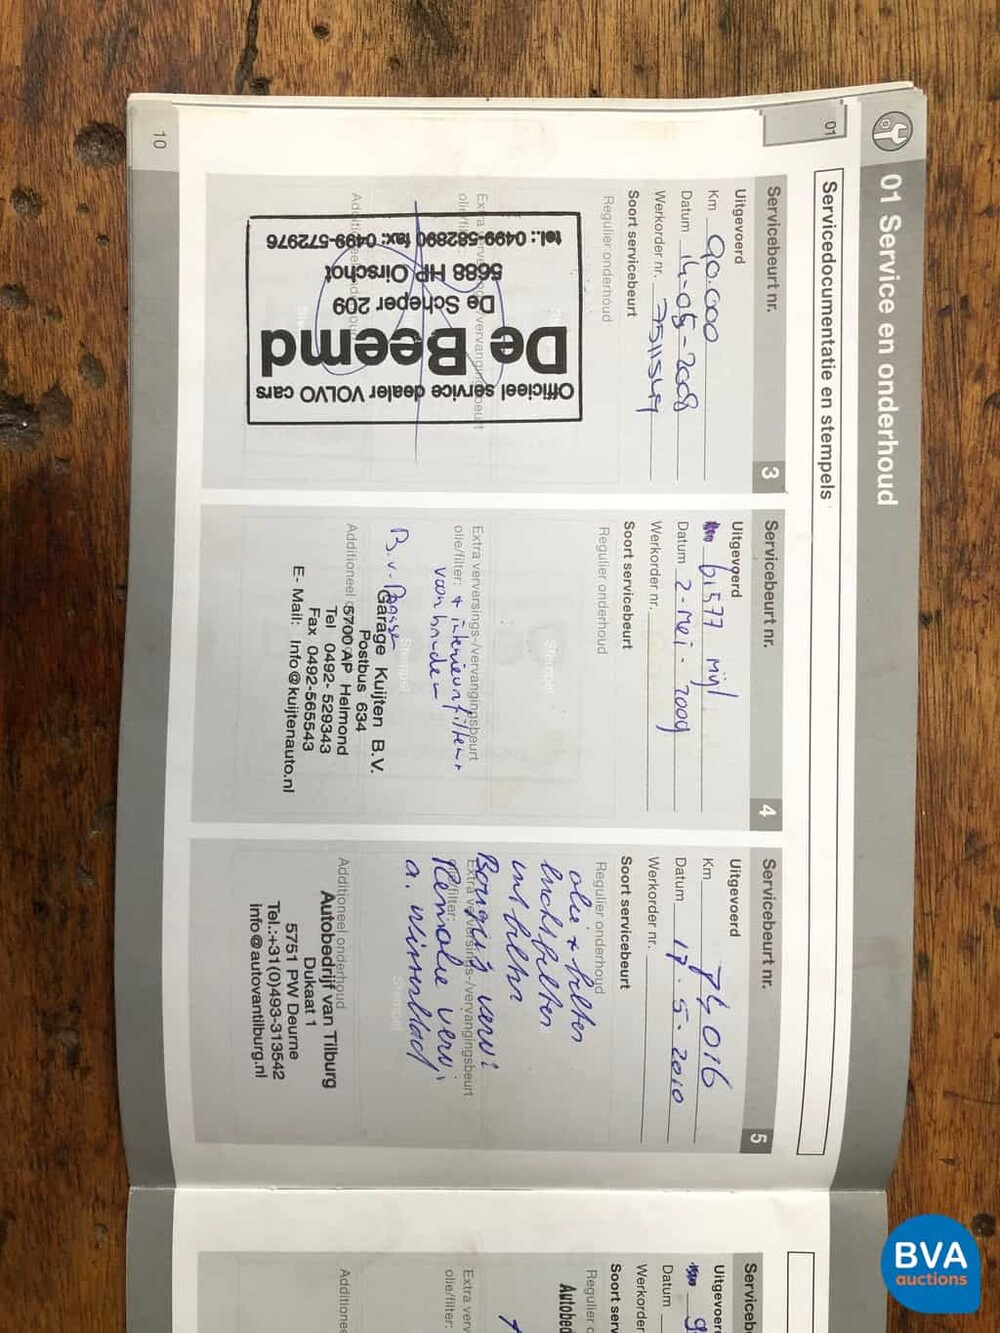 01 Service en onderhoud
01
Servicedocumentatie en stempels
Servicebeurt nr. 3
Uitgevoerd
Km 90.000
Datum 14-05-2008
Werkorder nr. 7511547
Soort servicebeurt
Regulier onderhoud
Officieel service dealer VOLVO cars
De Beemd
De Scheper 209
5688 HP Oirschot
tel.: 0499-582890 fax: 0499-572976
Servicebeurt nr. 4
Uitgevoerd
61577 mijl
Datum 2-Mei-2009
Werkorder nr.
Soort servicebeurt
Regulier onderhoud
Stempel
Extra verversings-/vervangingsbeurt
olie/filter: + interieurfilter
Garage Kuijten B.V.
Postbus 634
5700 AP Helmond
Tel 0492-529343
Fax 0492-565543
E- Mail: Info@kuijtenauto.nl
Additioneel
Servicebeurt nr. 5
Uitgevoerd
Km 74016
Datum 17.5.2010
Werkorder nr.
Soort servicebeurt
Regulier onderhoud
olie + filter
luchtfilter
int filter
Bougies verv:
Extra verversings-/vervangingsbeurt
olie/filter:
Remolie verv.
Stempel
Additioneel onderhoud
Autobedrijf van Tilburg
Dukaat 1
5751 PW Deurne
Tel.:+31(0)493-313542
info@autovantilburg.nl
10
Uitgevoerd
Datum
Werkorder
Soort
Regulier
Extra
olie/filter:
BVA
auctions